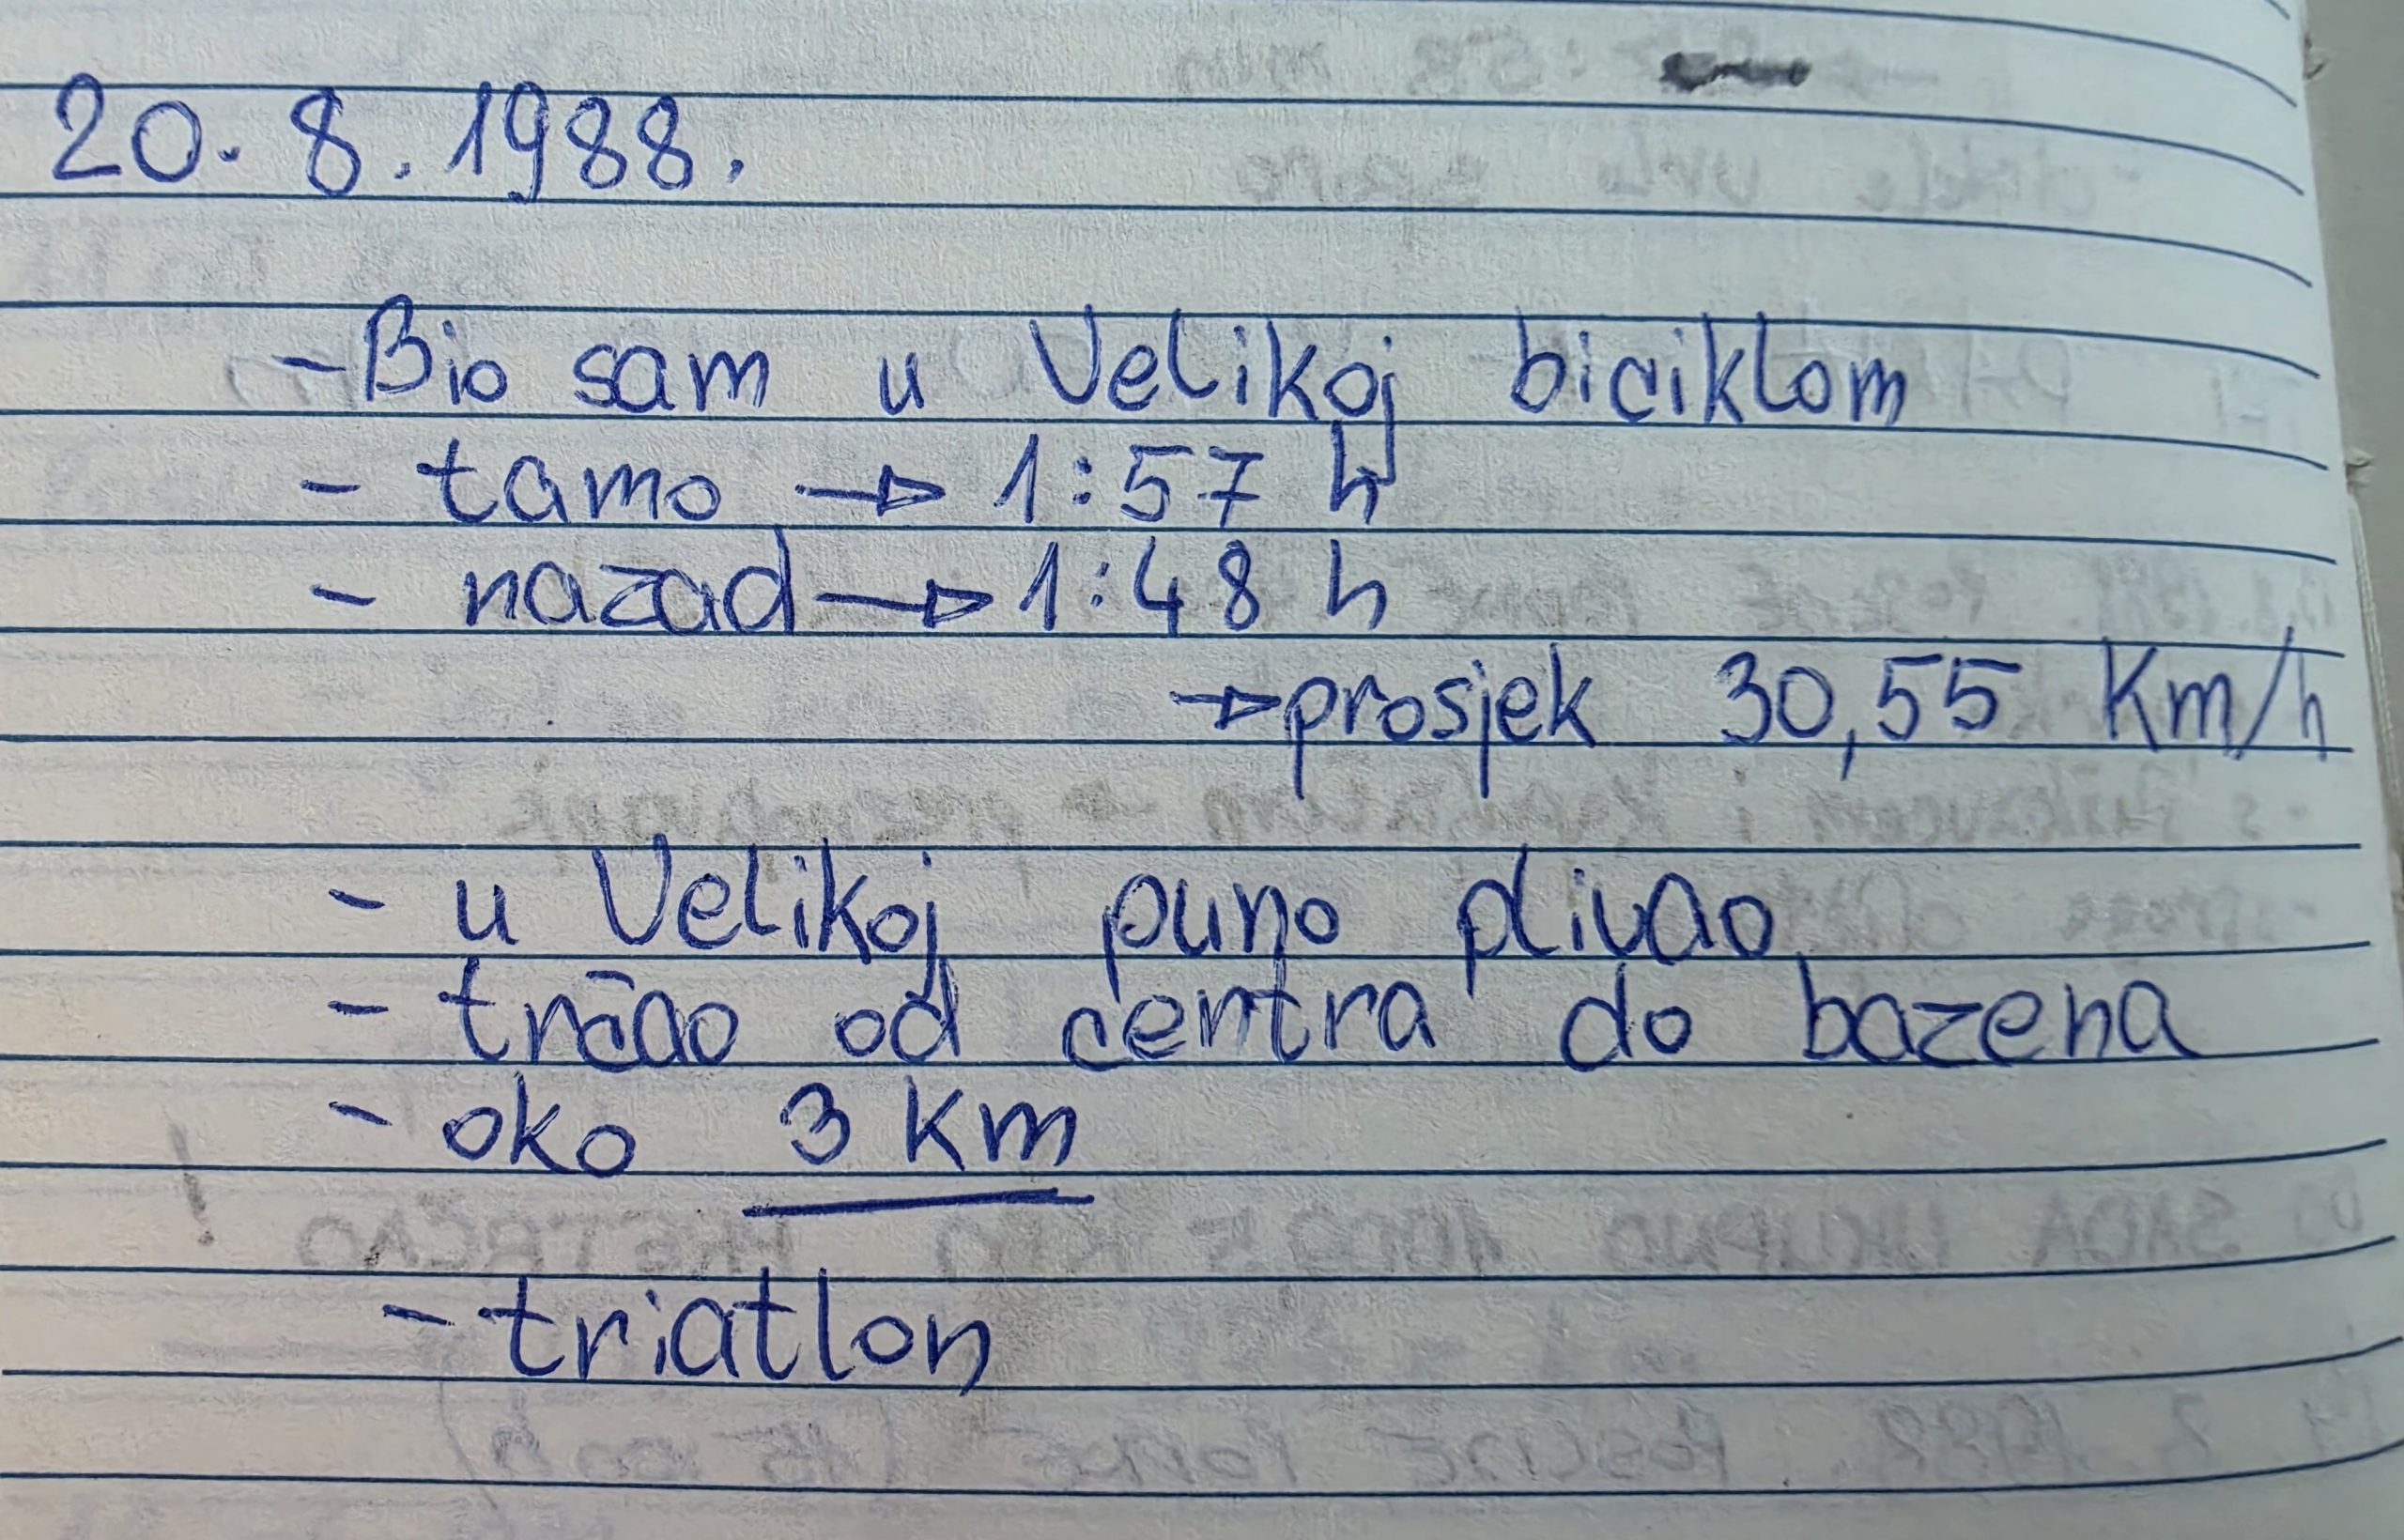 20. 8. 1988.
- Bio sam u Velikoj biciklom
- tamo → 1:57 h
- nazad → 1:48 h
→ prosjek 30,55 Km/h
- u Velikoj puno plivao
- trčao od centra do bazena
- oko 3 Km
- triatlon